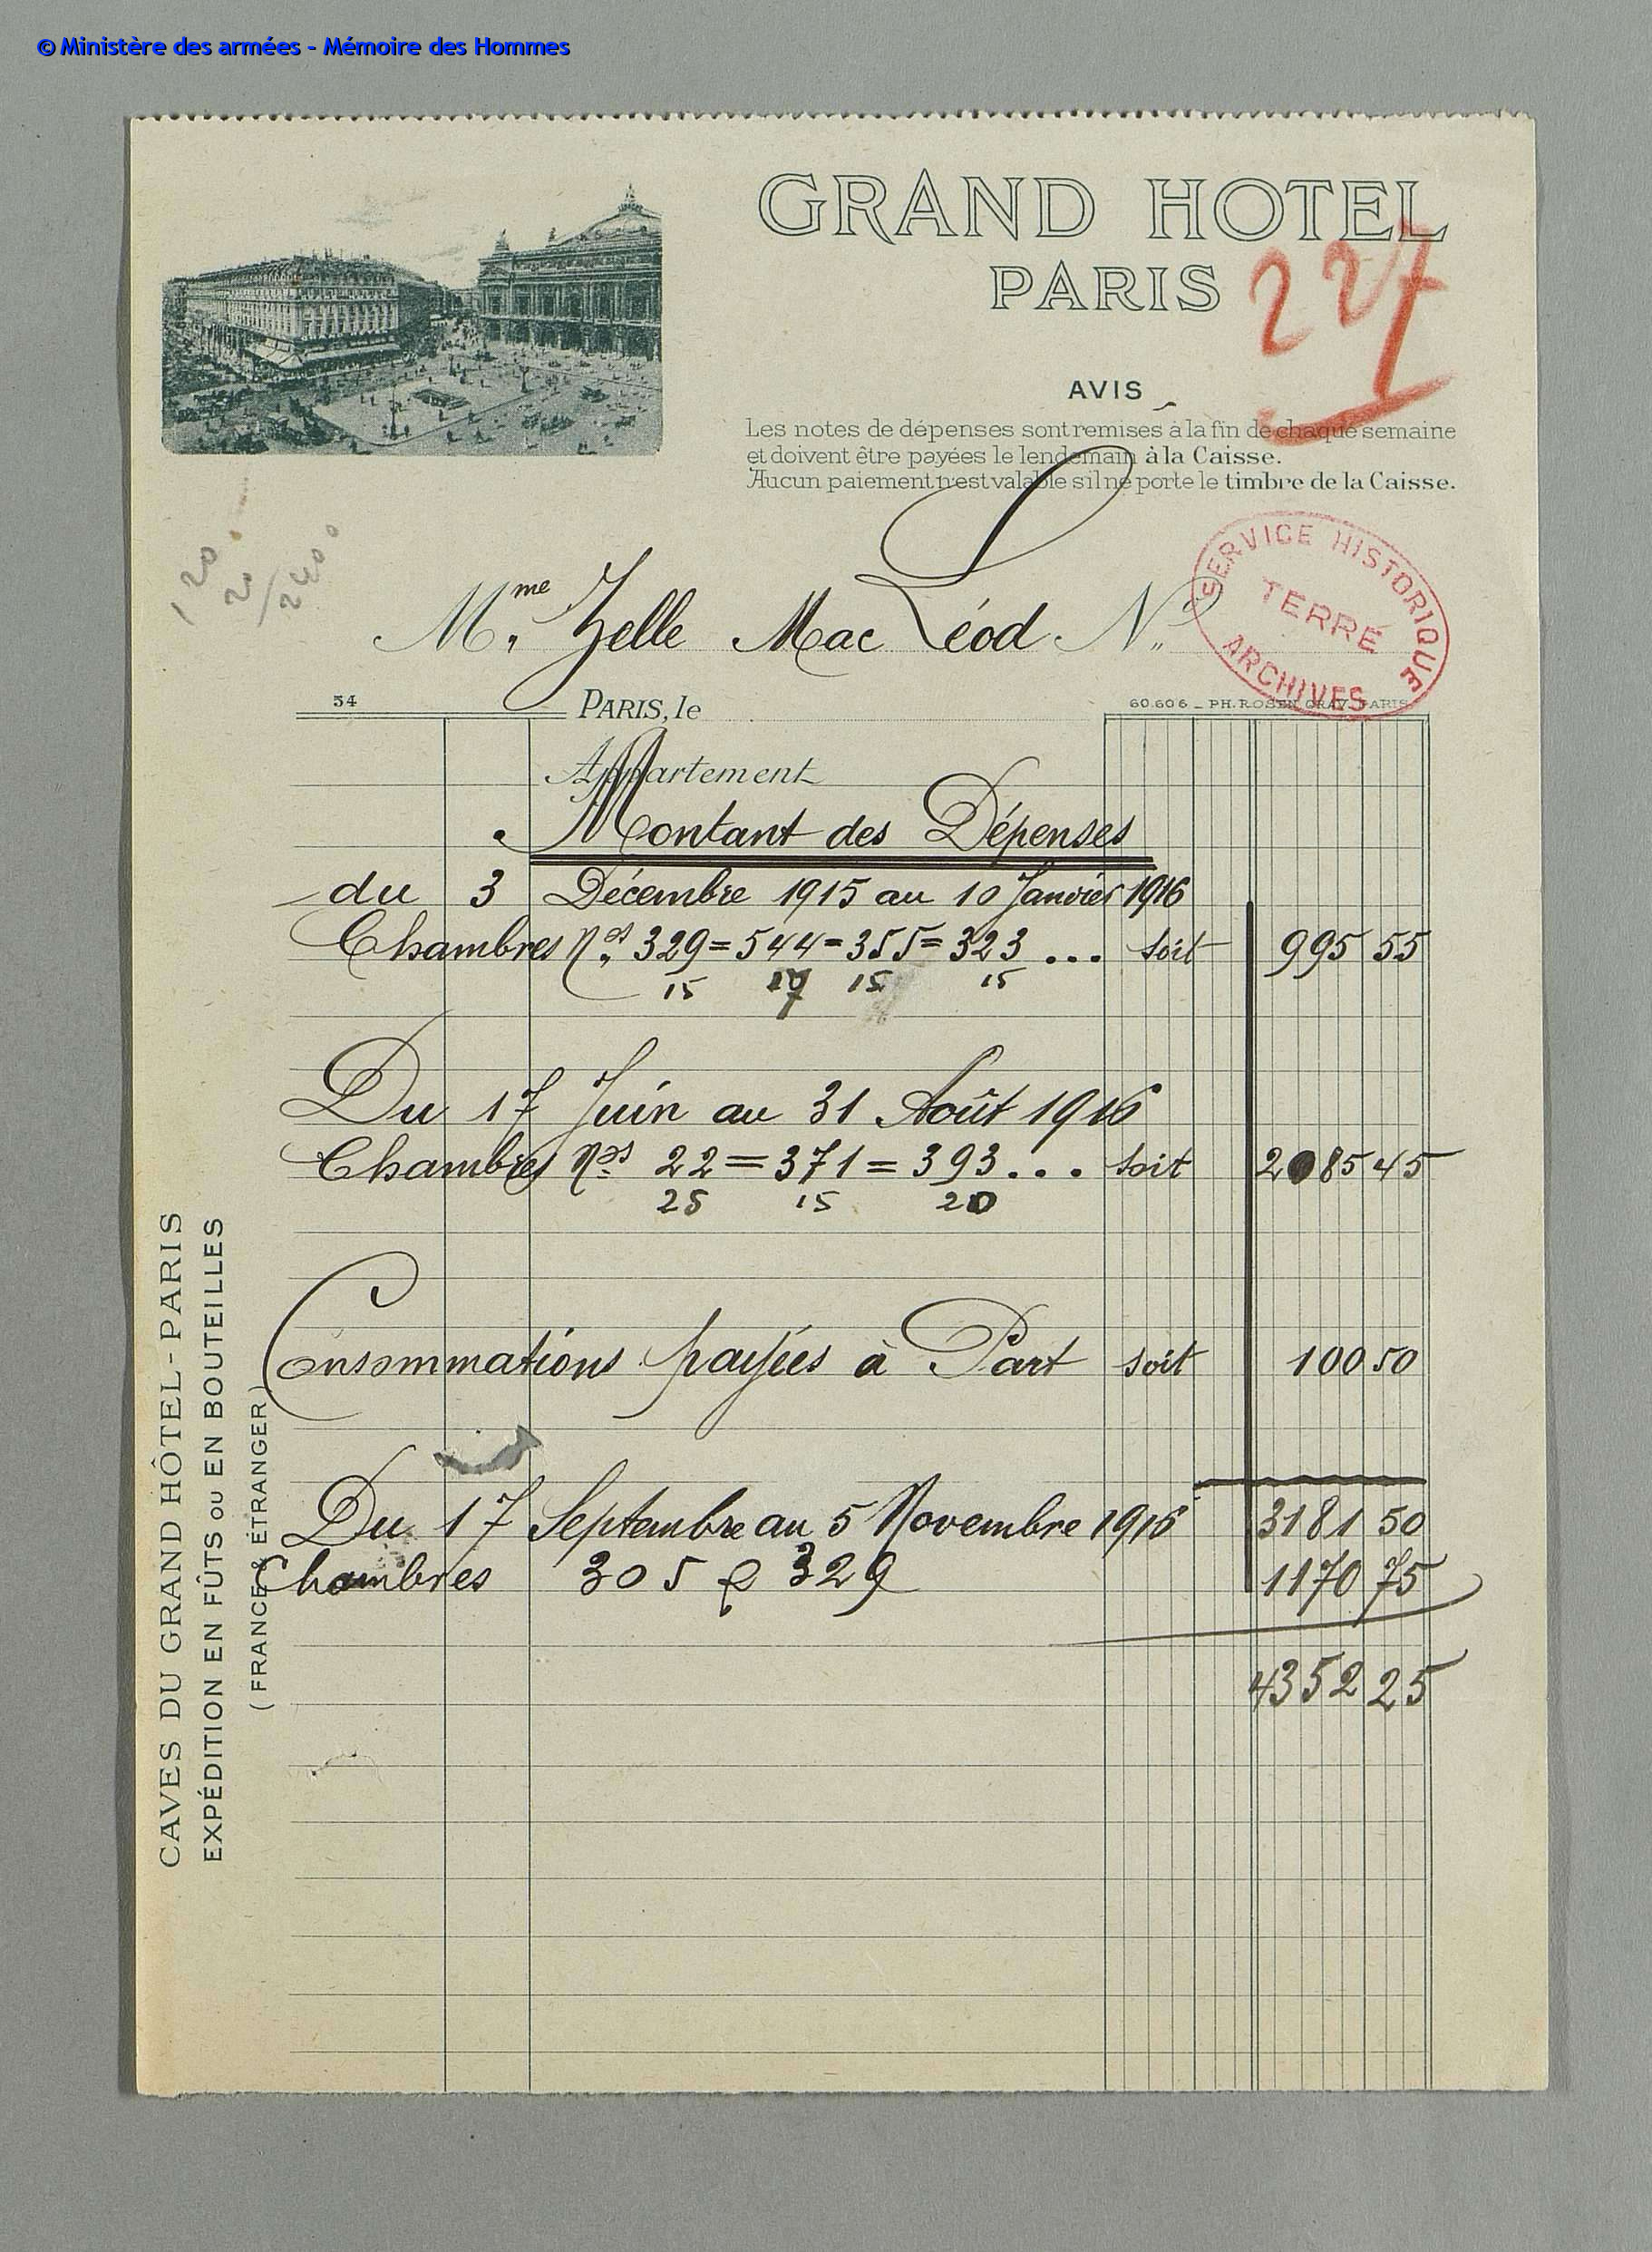 © Ministère des armées - Mémoire des Hommes
GRAND HOTEL
PARIS
227
AVIS
Les notes de dépenses sont remises à la fin de chaque semaine
et doivent être payées le lendemain à la Caisse.
Aucun paiement n'est valable s'il ne porte le timbre de la Caisse.
SERVICE HISTORIQUE
TERRE
ARCHIVES
120
20
2400
Mme Zelle Mac Léod No
54 PARIS, le 60.606 _ PH. ROSEN GRAV. PARIS
Appartement
Montant des Dépenses
du 3 Décembre 1915 au 10 Janvier 1916
Chambres Nos 329=544=355=323 ... soit 995 55
15 15 15
Du 17 Juin au 31 Août 1916
Chambres Nos 22=371=393... soit 2085 45
25 15 20
Consommations payées à Part soit 100 50
3181 50
Du 17 Septembre au 5 Novembre 1916
Chambres 305 e 329 1170 75
4352 25
CAVES DU GRAND HÔTEL-PARIS
EXPÉDITION EN FÛTS OU EN BOUTEILLES
(FRANCE & ÉTRANGER)